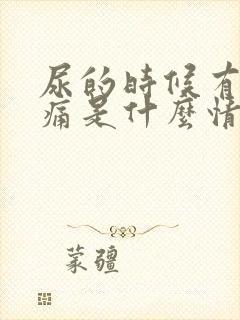 尿的時候有
痛是什麼情
蒙疆